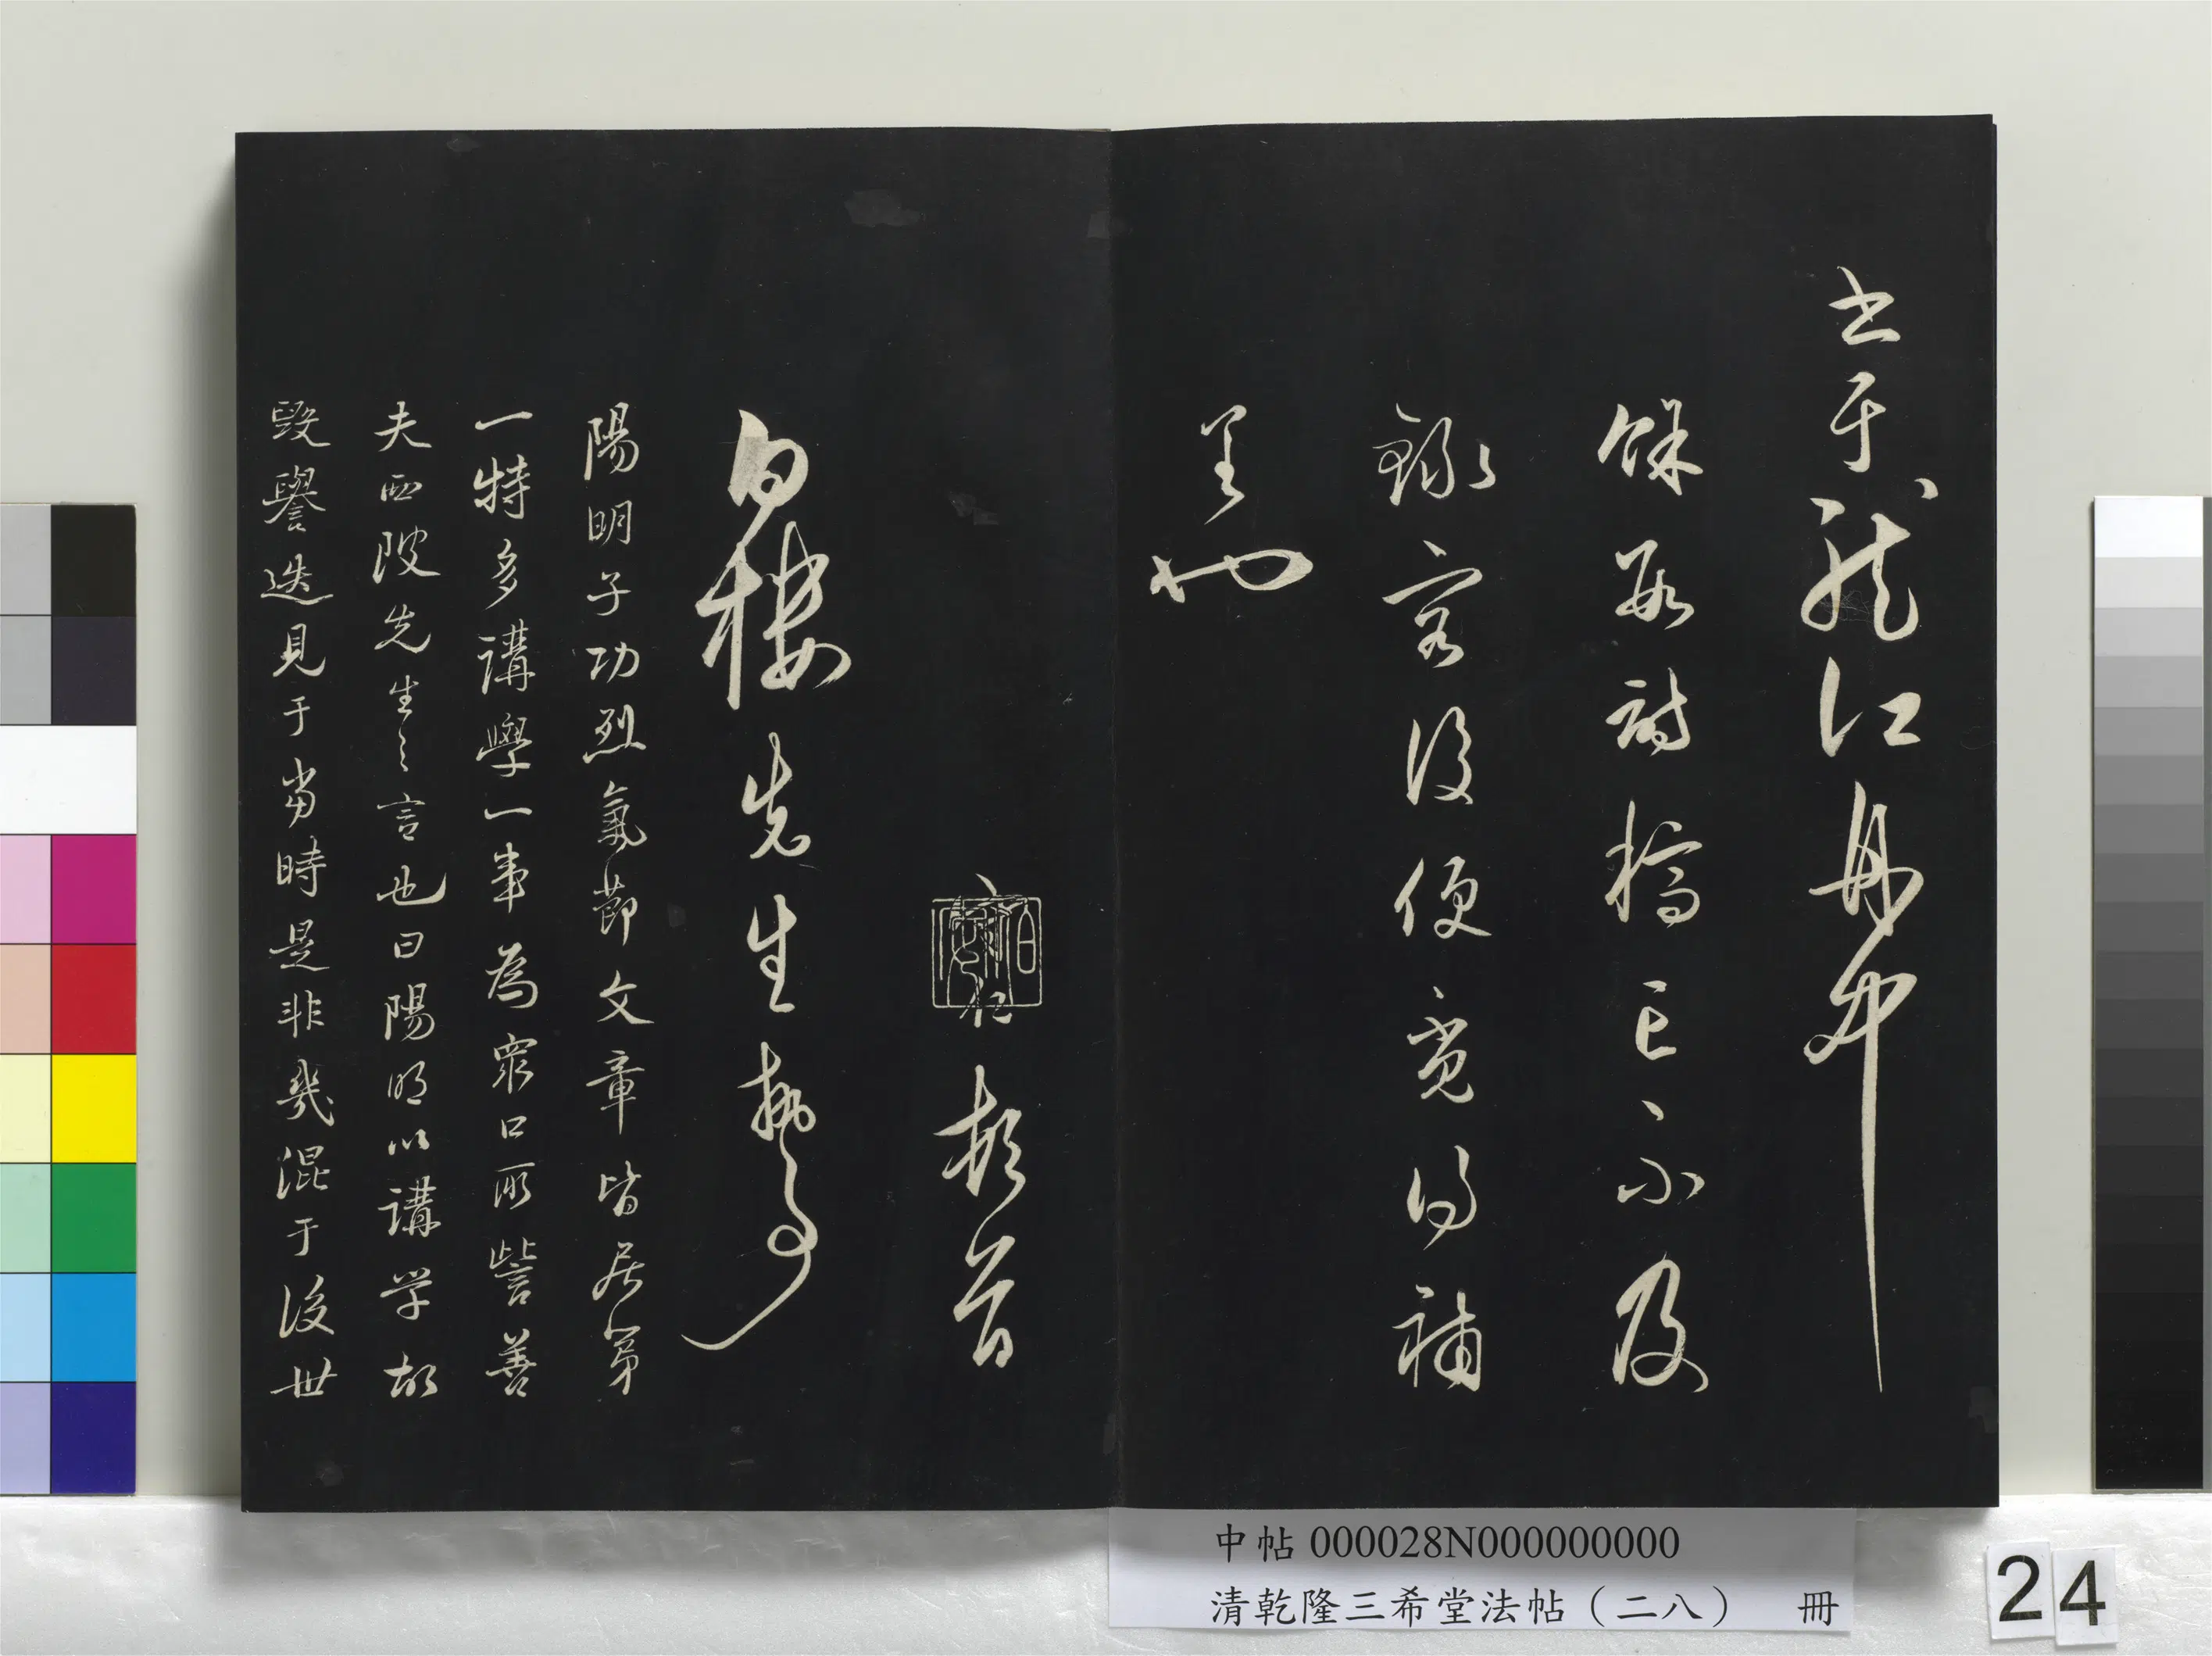 书于龍江舟中
餘數詩稿亡不及
錄容後便覓得補
呈也
守仁頓首
白樓先生執事
陽明子功烈氣節文章皆居第
一特多講學一事為眾口所訾善
夫西陂先生之言也曰陽明以講学故
毀譽迭見于當時是非幾混于後世
中帖 000028N000000000
清乾隆三希堂法帖（二八） 冊
24